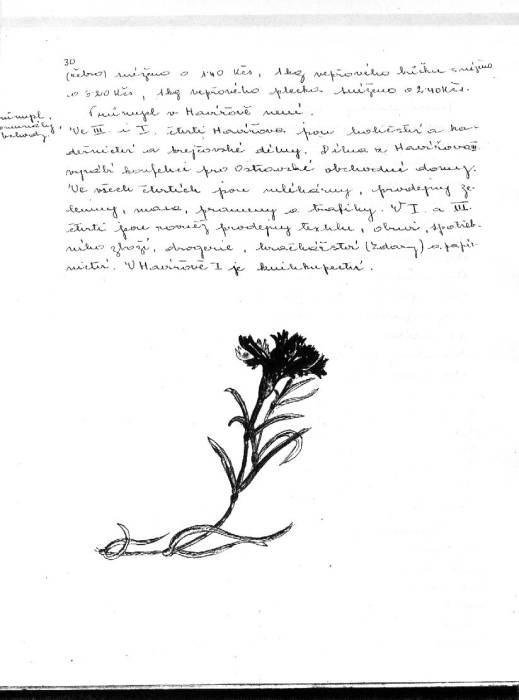 30
(žebro) sníženo o 1.40 Kčs, 1 kg vepřového bůčku sníženo
o 5.20 Kčs, 1 kg vepřového plecka sníženo o 2.40 Kčs.
Průmysl v Havířově není.
Průmysl,
komunály,
obchody.
Ve III. i I. čtvrti Havířova jsou holičství a ka-
deřnictví a krejčovské dílny. Dílna z Havířova III.
vyrábí konfekci pro Ostravské obchodné domy.
Ve všech čtvrtích jsou mlékárny, prodejny ze-
leniny, masa, prameny a trafiky. V I. a III.
čtvrti jsou rovněž prodejny textilu, obuvi, spotřeb-
ního zboží, drogerie, hračkářství (Zdary) a papír-
nictví. V Havířově I je knihkupectví.